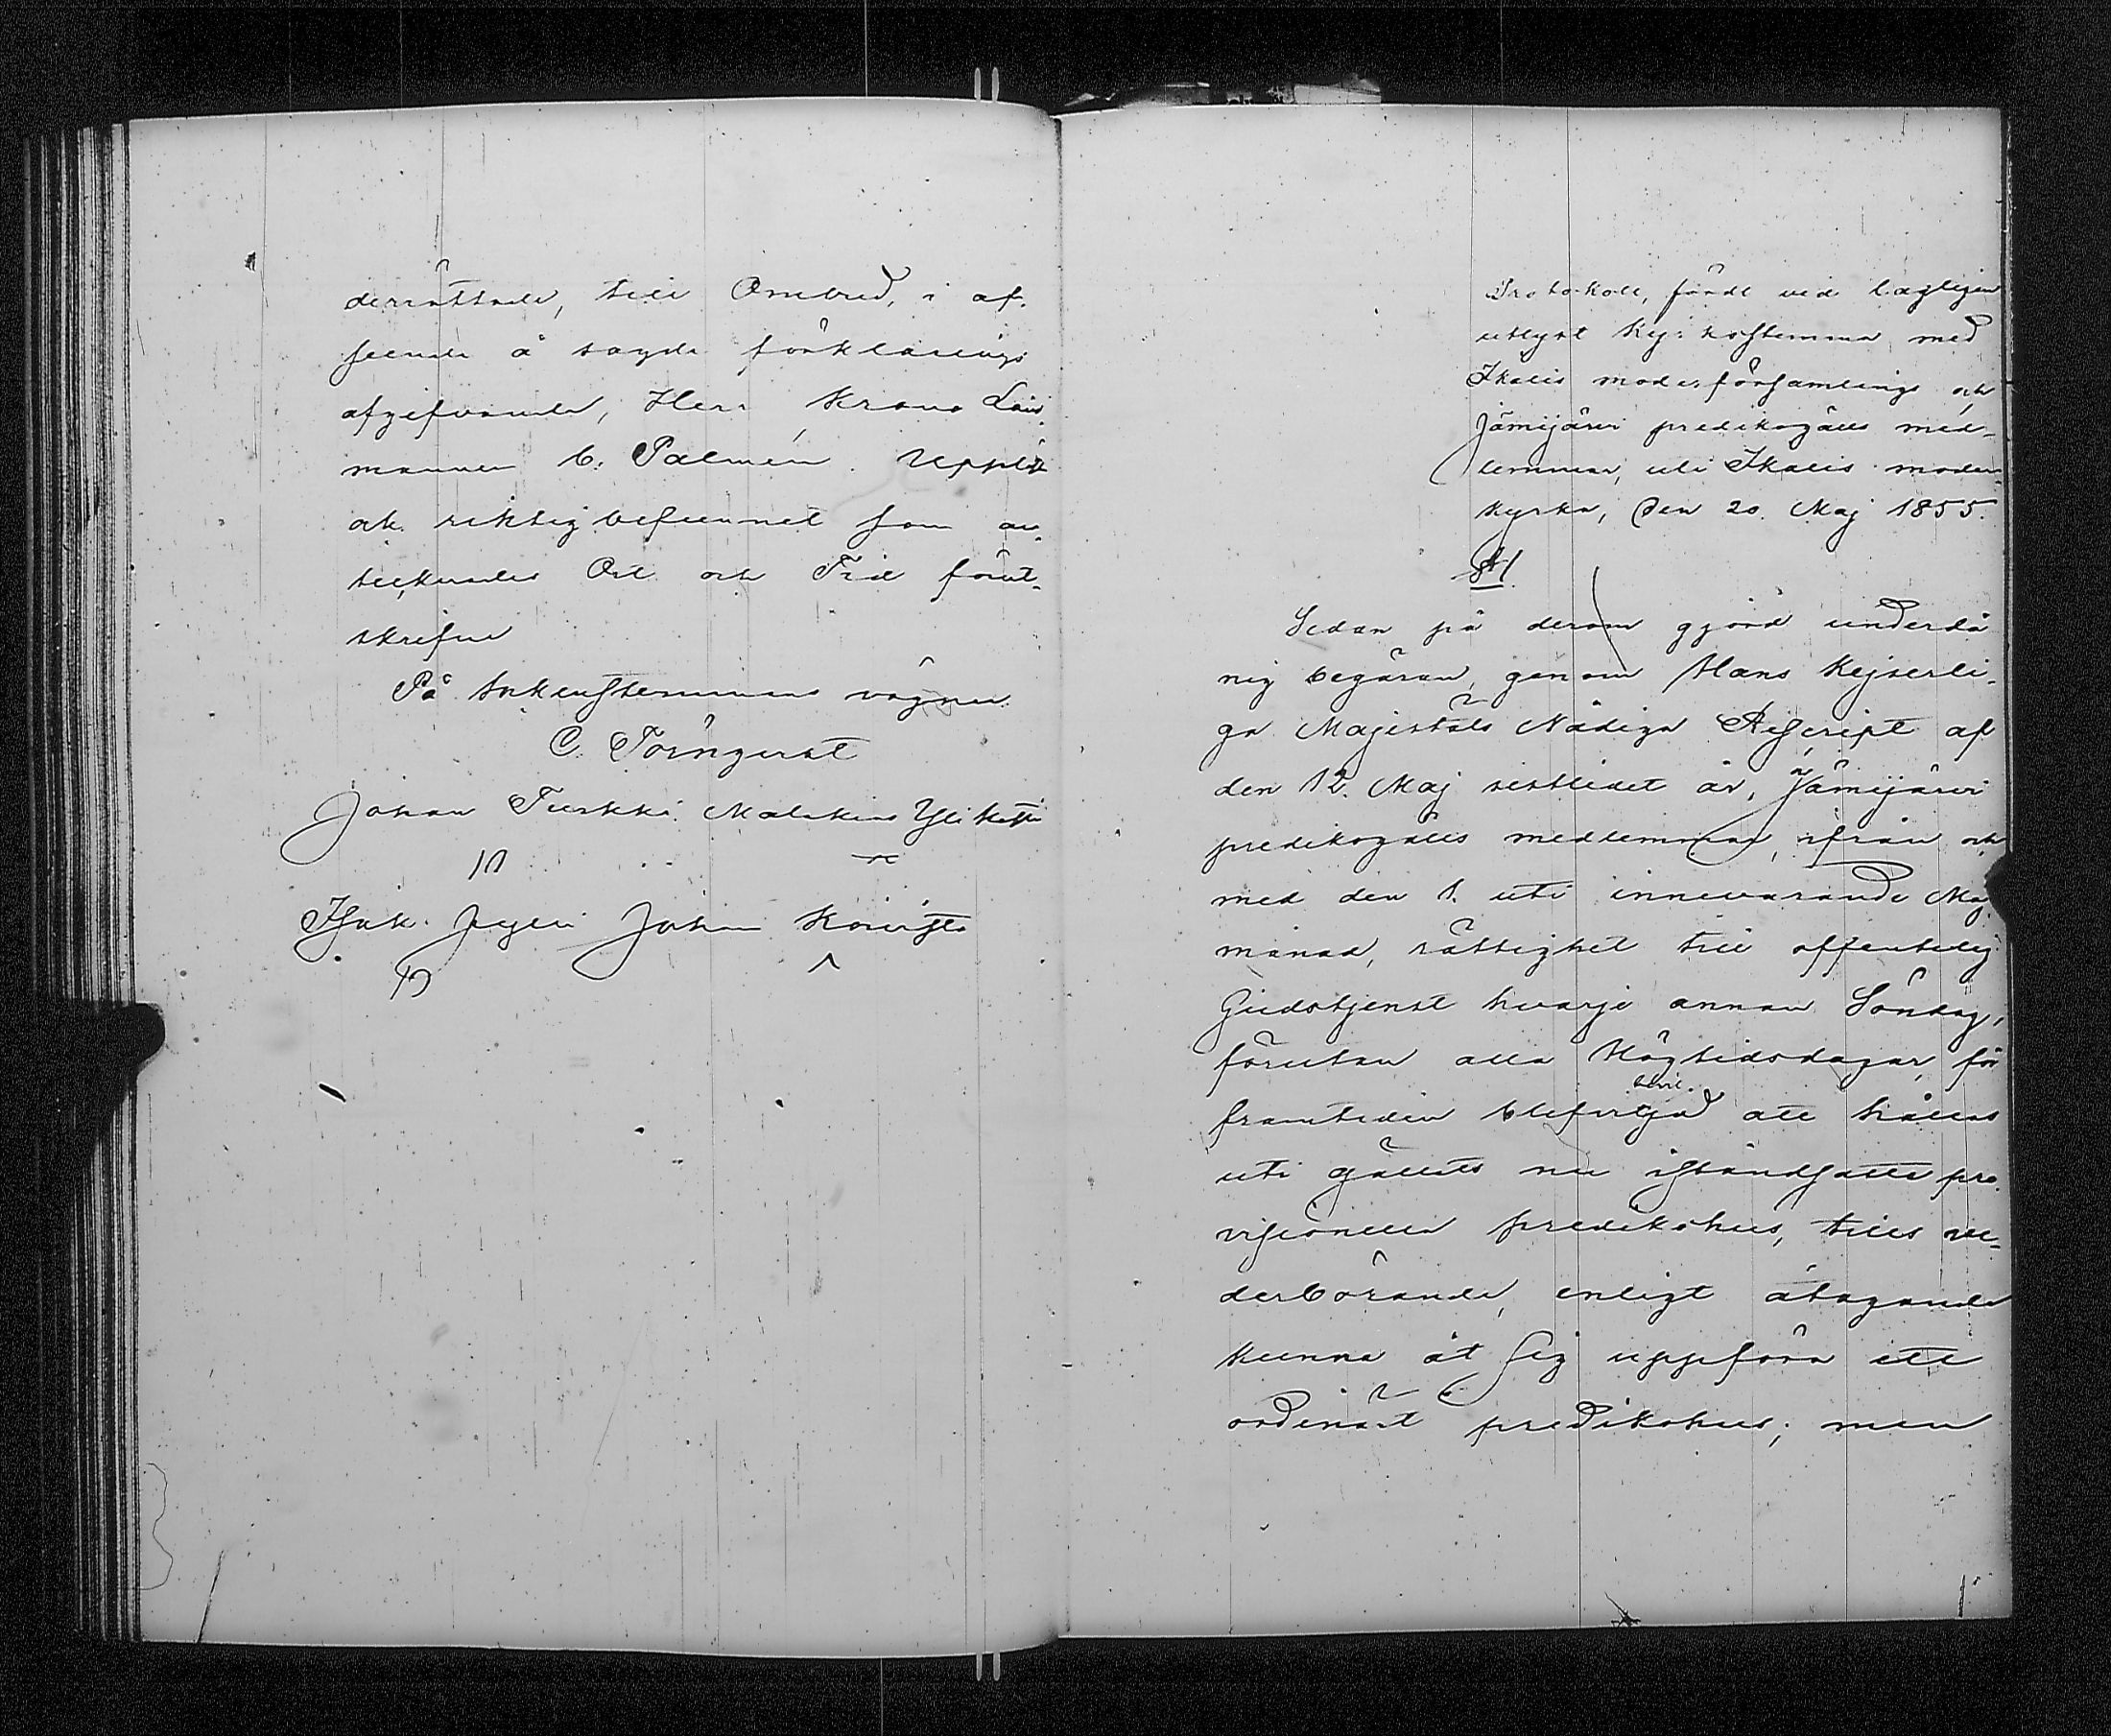 derrättade, till Ombud, i af-
seende å sagde förklarings
afgifvande, Herr Krono Läns
mannen C. Palmén. Uppläst
och riktig befunnet som an-
tecknades Ort och Tid förut-
skrifne
På Sockenstemmans vägnar
C. Törnqvist
Johan Turkki Malakias Ylikesti
Isak Johan Koivisto
Protokoll, fördt vid lagligen
utlyst Kyrkostemma med
Ikalis moderförsamlings och
Jämijärvi predikogälls med-
lemmar, uti Ikalis moder-
kyrka, den 20. Maj 1855.
§ 1.
Sedan på derom gjord underdå
nig begäran, genom Hans Kejserli-
ga Majestäts Nådiga Rescript af
den 12. Maj sistlidet år, åt Jämijärvi
predikogälls medlemmar, ifrån och
med den 1. uti innevarande Maj
månad, rättighet till offentelig
Gudstjenst hvarje annan Söndag,
förutan alla Högtidsdagar, för
framtiden blifvit bevil-jad att hållas
uti gällets nu iståndsatte pro-
visionella predikohus, tills ve-
derbörande, enligt åtagande
kunna åt sig uppföra ett
ordinärt predikohus; men